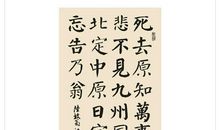 死去原知萬事
悲不見九州同
北定中原日家
忘告乃翁